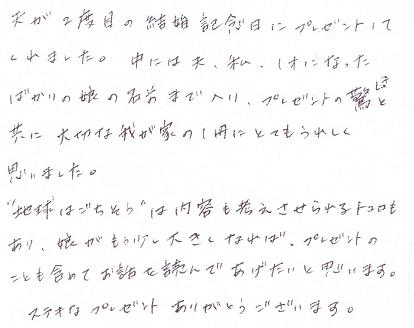 夫が2度目の結婚記念日にプレゼントして
くれました。中には夫、私、1才になった
ばかりの娘の名前まで入り、プレゼントの驚きと
共に大切な我が家の1冊にとてもうれしく
思いました。
"地球はごちそう"は内容も考えさせられるトコロも
あり、娘がもう少し大きくなれば、プレゼントの
ことも含めてお話を読んであげたいと思います。
ステキなプレゼントありがとうございます。